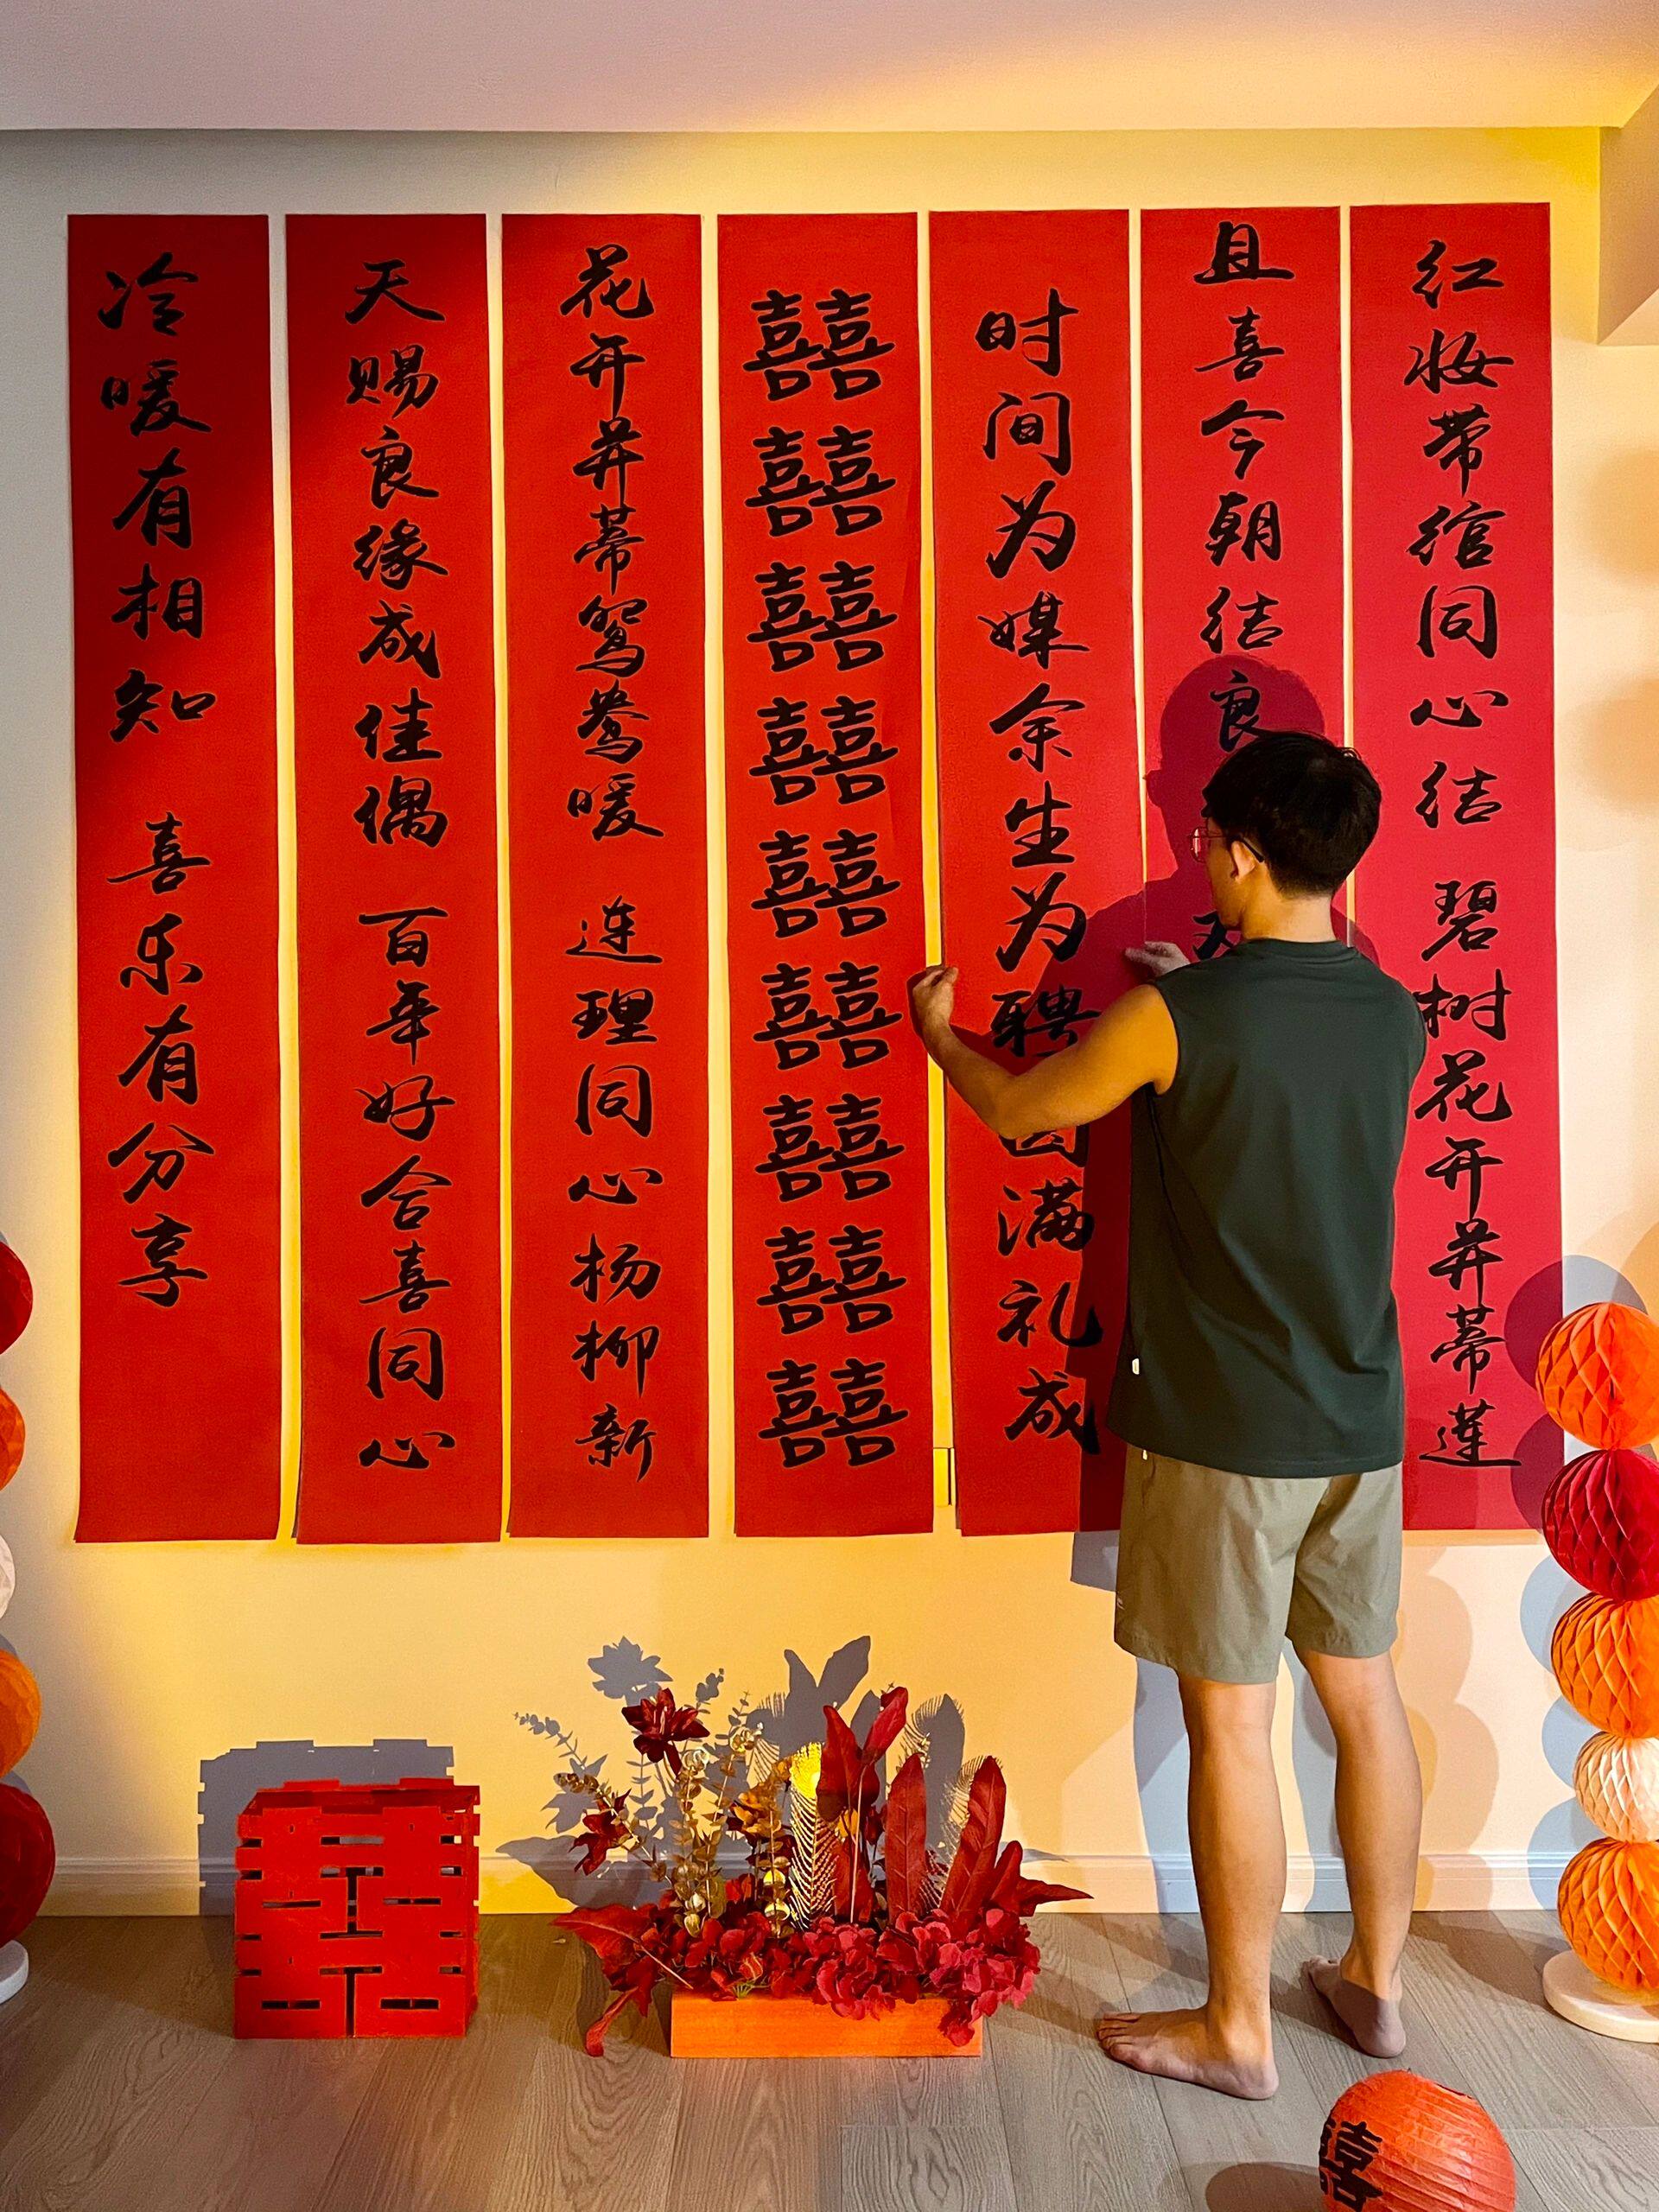 红妆带绾同心结 碧树花开并蒂莲
且喜今朝结良
时间为媒余生为聘 满礼成
囍囍囍囍囍囍囍囍囍
花开并蒂鸳鸯暖 连理同心杨柳新
天赐良缘成佳偶 百年好合喜同心
冷暖有相知 喜乐有分享
囍
囍